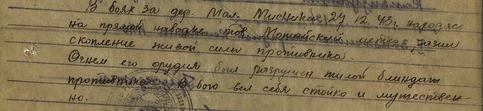 В боях за дер. Мал. 27.12.43г. находясь
на прямой наводке тов. метко разил
скопление живой силы противника.
Огнем его орудия был разрушен жилой блиндаж
противника. В бою вел себя стойко и мужествен-
но.